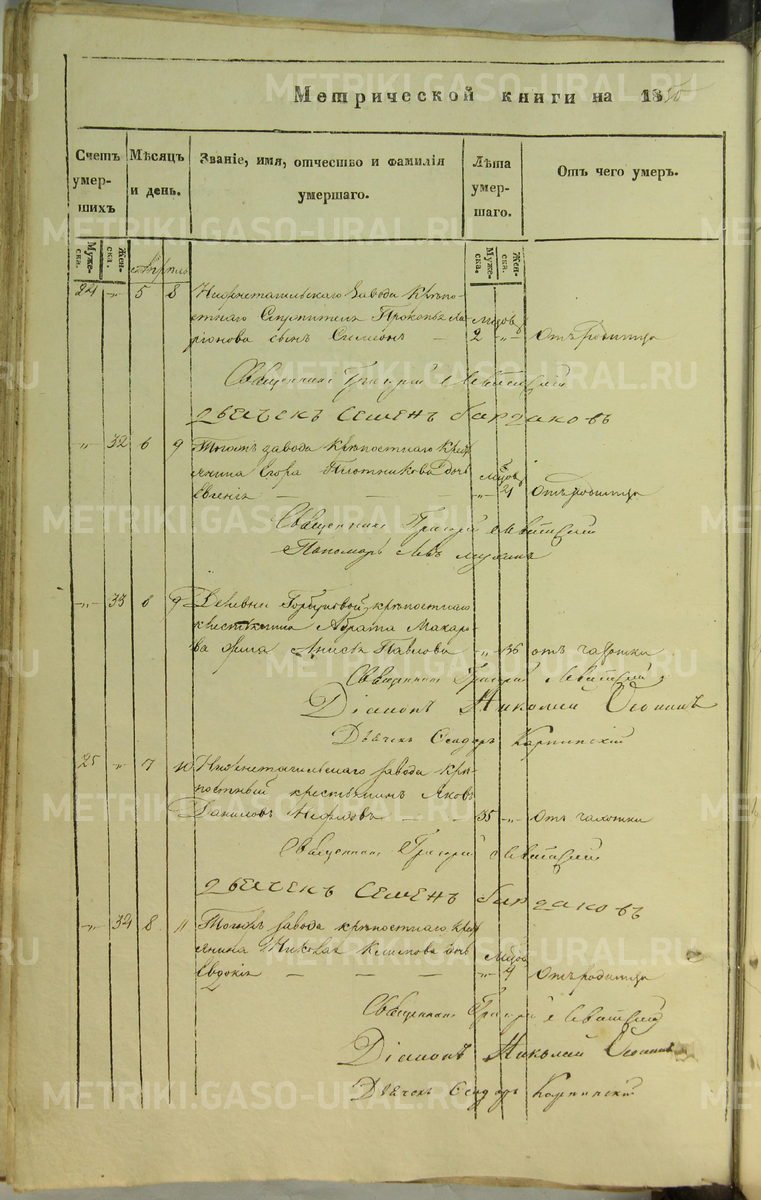 Метрической книги на 1850
Счетъ умершихъ
Мѣсяцъ и день.
Званіе, имя, отчество и фамилія умершаго.
Лѣта умершаго.
Отъ чего умеръ.
Мужеска.
Женска.
Мужеска.
Женска.
Апрѣль
24 „ 5 8 Нижнетагильскаго завода крѣпо-
стнаго Прокопья Ла- Мѣсяцовъ
ріонова сынъ Симеонъ — 2 „ Отъ родимца
Священникъ Григорій Левитскій
Дьячекъ Семенъ Бардаковъ
„ 32 6 9 Тогожъ завода крѣпостнаго крест-
янина Егора Плотникова дочь Мѣсяцовъ
Евгенія — — — „ Отъ родимца
Священникъ Григорій Левитскій
Пономарь Левъ
„ 33 6 9 Деревни Горбуновой крѣпостнаго
крестьянина Макаро-
ва жена Анисья Павлова „ 36 отъ чахотки
Священникъ Григорій Левитскій
Діаконъ Николай
Дьячекъ Сидоръ Карпинскій
25 „ 7 10 Нижнетагильскаго завода крѣ-
постный крестьянинъ Яковъ
Даниловъ — — 35 „ Отъ чахотки
Священникъ Григорій Левитскій
Дьячекъ Семенъ Бардаковъ
„ 34 8 11 Тогожъ завода крѣпостнаго крест-
янина Николая дочь Мѣсяцовъ
Евдокія — — — „ 4 Отъ родимца
Священникъ Григорій Левитскій
Діаконъ Николай
Дьячекъ Сидоръ Карпинскій
METRIKI.GASO-URAL.RU